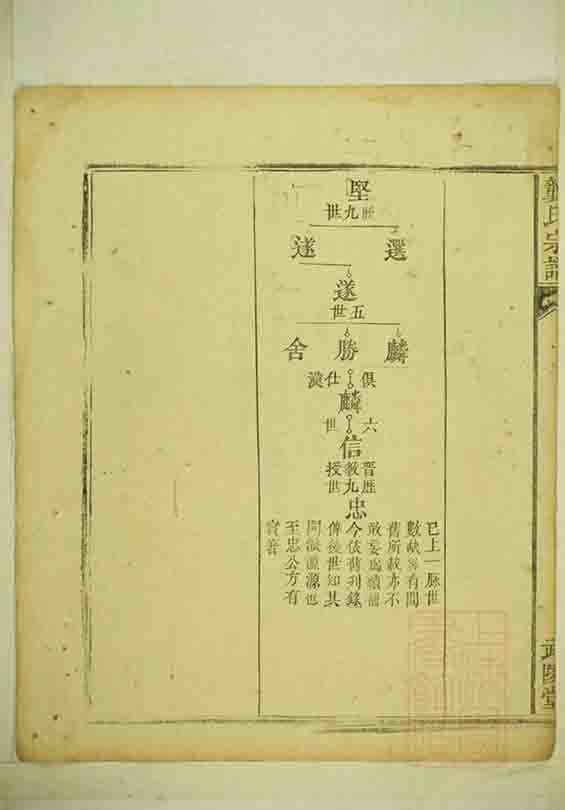 龔氏宗譜
武陵堂
堅
歷九世
選 遂
遂
五世
麟 勝 舍
俱仕漢
麟
六世
信
晉教授
歷九世
忠
已上一脉世
數缺畧有間
舊所載亦不
敢妄爲續
今依舊刋錄
傳後世知其
間淵源也
至忠公方有
實著